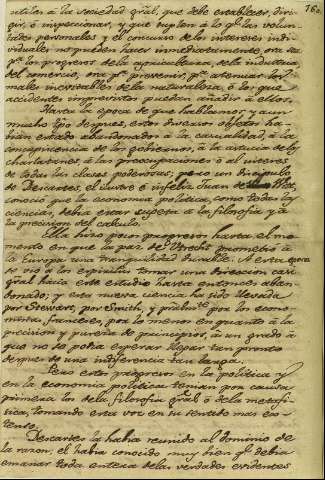 160.
utiles à la sociedad gral, que debe establecer, diri-
gir, ó inspeccionar, y que suplen à lo q.e las volun-
tades personales y el concurso de los intereses indi-
viduales no pueden hacer inmediatamente, ora sea
p.a los progresos de la agricultura, de la industria,
del comercio, ora p.a prevenir, p.a atenuar los
males inevitables de la naturaleza, ó los que
accidentes imprevistos puedan añadir à ellos.
Hasta la época de que hablamos, y aun
mucho tpo despues, estos diversos objetos ha-
bian estado abandonados à la casualidad, à la
concupiscencia de los gobiernos, à la astucia de los
charlatanes, à las preocupaciones ó al interes
de todas las clases poderosas; pero un discipulo
de Descartes, el ilustre é infeliz Juan de Witt,
conoció que la economia politica, como todas las
ciencias, debia estar sujeta à la filosofia y à
la precision del calculo.
Ella hizo pocos progresos hasta el mo-
mento en que la paz de Utrecht prometió à
la Europa una tranquilidad durable. A esta epoca
se vió à los espiritus tomar una direccion casi
gral hacia este estudio hasta entonces aban-
donado; y esta nueva ciencia ha sido llevada
por Stewart, por Smith, y pralm.te por los econo-
mistas franceses, por lo menos en quanto à la
precision y pureza de principios, à un grado à
que no se podia esperar llegar tan pronto
despues de una indiferencia tan larga.
Pero estos progresos en la politica y
en la economia politica tenian por causa
primera los de la filosofia gral ó de la metafi-
sica, tomando esta voz en su sentido mas ex-
tenso.
Descartes la habia reunido al dominio de
la razon; él habia conocido muy bien q.e debia
emanar toda entera de las verdades evidentes